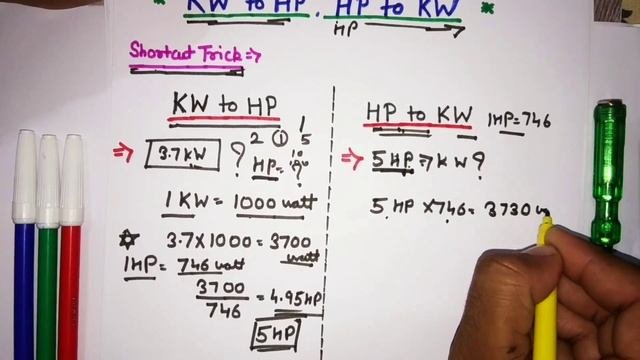 KW to HP. HP to KW
HP
Shortcut Trick⇒
KW to HP
⇒ 3.7 KW ?
2 ① 5
HP = ?
1 KW = 1000 watt
☆ 3.7 X 1000 = 3700
watt
1HP = 746 watt
3700
746
= 4.95 HP
5 HP
HP to KW 1HP = 746
⇒ 5 HP ⇒ KW ?
5 HP X 746 = 3730 w